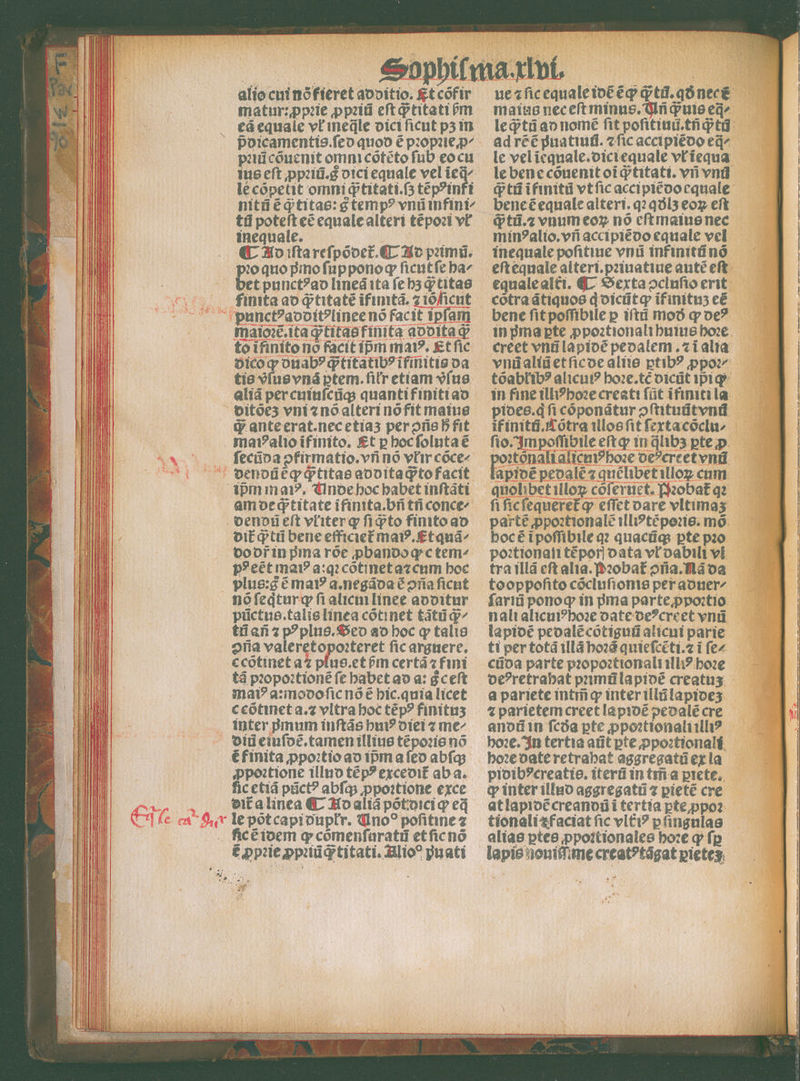 Sophisma.xlvi.
alio cui nō fieret additio. Et cōfir
matur: ꝓprie ꝓpriū est q̄titati ẜm
eā equale vl̓ ineq̄le dici sicut pꝫ in
p̄dicamentis. sed quod ē proprie ꝓ⸗
priū cōuenit omni cōtēto sub eo cu
ius est ꝓpriū. g̊ dici equale vel ieq̄⸗
le cōpetit omni q̄titati. sꝫ tēpꝰ infi
nitū ē q̄titas: g̊ tempꝰ vnū infini⸗
tū potest eē equale alteri tēpori vl̓
inequale.
¶ Ad ista respōdet̄. ¶ Ad primū.
pro quo p̄mo suppono ꝙ sicut se ha⸗
bet punctꝰ ad lineā ita se hꝫ q̄titas
finita ad q̄titatē ifinitā. ⁊ iō sicut
punctꝰ additꝰ linee nō facit ipsam
maiorē. ita q̄titas finita addita q̄
to ifinito nō facit ip̄m maiꝰ. Et sic
dico ꝙ duabꝰ q̄titatibꝰ ifinitis da
tis v̓sus vnā ꝑtem. sil̓r etiam v̓sus
aliā per cuiuscūqꝫ quanti finiti ad
ditōeꝫ vni ⁊ nō alteri nō fit maius
q̄ ante erat. nec etiaꝫ per ↄn̄s h̄ fit
maiꝰ alio ifinito. Et ꝑ hoc soluta ē
secūda ↄfirmatio. vn̄ nō vl̓r cōce⸗
dendū ē ꝙ q̄titas addita q̄to facit
ip̄m maiꝰ. Unde hoc habet instāti
am de q̄titate ifinita. bn̄ tn̄ conce⸗
dendū est vl̓iter ꝙ si q̄to finito ad
dit̄ q̄tū bene efficiet̄ maiꝰ. Et quā⸗
do dr̄ in p̄ma rōe ꝓbando ꝙ c tem⸗
pꝰ eēt maiꝰ a: qꝛ cōtinet a⁊ cum hoc
plus: g̊ ē maiꝰ a. negāda ē ↄn̄a sicut
nō seq̄tur ꝙ si alicui linee additur
pūctus. talis linea cōtinet tātū q̄⸗
tū an̄ ⁊ pꝰ plus. Sed ad hoc ꝙ talis
ↄn̄a valeret oporteret sic arguere.
c cōtinet a⁊ plus. et ẜm certā ⁊ fini
tā proportionē se habet ad a: g̊ c est
maiꝰ a: modo sic nō ē hic. quia licet
c cōtinet a. ⁊ vltra hoc tēpꝰ finituꝫ
inter p̄mum instās huiꝰ diei ⁊ me⸗
diū eiusdē. tamen illius tēporis nō
ē finita ꝓportio ad ip̄m a sed absqꝫ
ꝓportione illud tēpꝰ excedit̄ ab a.
sic etiā pūctꝰ absqꝫ ꝓportione exce
dit̄ a linea ¶ Ad aliā pōt dici ꝙ eq̄
le pōt capi dupl̓r. Unoº positiue ⁊
sic ē idem ꝙ cōmensuratū et sic nō
ē ꝓprie ꝓpriū q̄titati. Alioº p̄uati
ue ⁊ sic equale idē ē ꝙ q̄tū. qd̄ nec ē
maius nec est minus. Un̄ q̄uis eq̄⸗
le q̄tū ad nomē sit positiuū. tn̄ q̄tū
ad rē ē p̄uatiuū. ⁊ sic accipiēdo eq̄⸗
le vel iequale. dici equale vl̓ iequa
le bene cōuenit oi q̄titati. vn̄ vnū
q̄tū ifinitū vt sic accipiēdo equale
bene ē equale alteri. qꝛ qd̓lꝫ eoꝝ est
q̄tū. ⁊ vnum eoꝝ nō est maius nec
minꝰ alio. vn̄ accipiēdo equale vel
inequale positiue vnū infinitū nō
est equale alteri. priuatiue autē est
equale alt̓i. ¶ Sexta ↄclusio erit
cōtra ātiquos q̇ dicūt ꝙ ifinituꝫ eē
bene sit possibile ꝑ istū mod̄ ꝙ deꝰ
in p̄ma ꝑte ꝓportionali huius hore
creet vnū lapidē pedalem. ⁊ i alia
vnū aliū et sic de aliis ꝑtibꝰ ꝓpor⸗
tōabl̓ibꝰ alicuiꝰ hore. tē dicūt ip̄i ꝙ
in fine illiꝰ hore creati sūt ifiniti la
pides. q̇ si cōponātur ↄstituūt vnū
ifinitū. Cōtra illos sit sexta cōclu⸗
sio. Impossibile est ꝙ in q̄libꝫ ꝑte ꝓ
portōnali alicuiꝰ hore deꝰ creet vnū
lapidē pedalē ⁊ quēlibet illoꝝ cum
quolibet illoꝝ cōseruet. Probat̄ qꝛ
si sic sequeret̄ ꝙ esset dare vltimaꝫ
partē ꝓportionalē illiꝰ tēporis. mō
hoc ē ipossibile qꝛ quacūqꝫ ꝑte pro
portionali tēpor̄ data vl̓ dabili vl
tra illā est alia. Probat̄ ↄn̄a. Nā da
to opposito cōclusionis per aduer⸗
sariū pono ꝙ in p̄ma parte ꝓportio
nali alicuiꝰ hore date deꝰ creet vnū
lapidē pedalē cōtiguū alicui parie
ti per totā illā horā quiescēti. ⁊ i se⸗
cūda parte proportionali illiꝰ hore
deꝰ retrahat primū lapidē creatuꝫ
a pariete intm̄ ꝙ inter illū lapideꝫ
⁊ parietem creet lapidē pedalē cre
andū in scd̓a ꝑte ꝓportionali illiꝰ
hore. In tertia aūt ꝑte ꝓportionali
hore date retrahat aggregatū ex la
pidibꝰ creatis. iterū in tm̄ a ꝑiete.
ꝙ inter illud aggregatū ⁊ ꝑietē cre
at lapidē creandū i tertia ꝑte ꝓpor
tionali ⁊ faciat sic vlt̓iꝰ ꝑ singulas
alias ꝑtes ꝓportionales hore ꝙ sꝑ
lapis nouissime creatꝰ tāgat ꝑieteꝫ